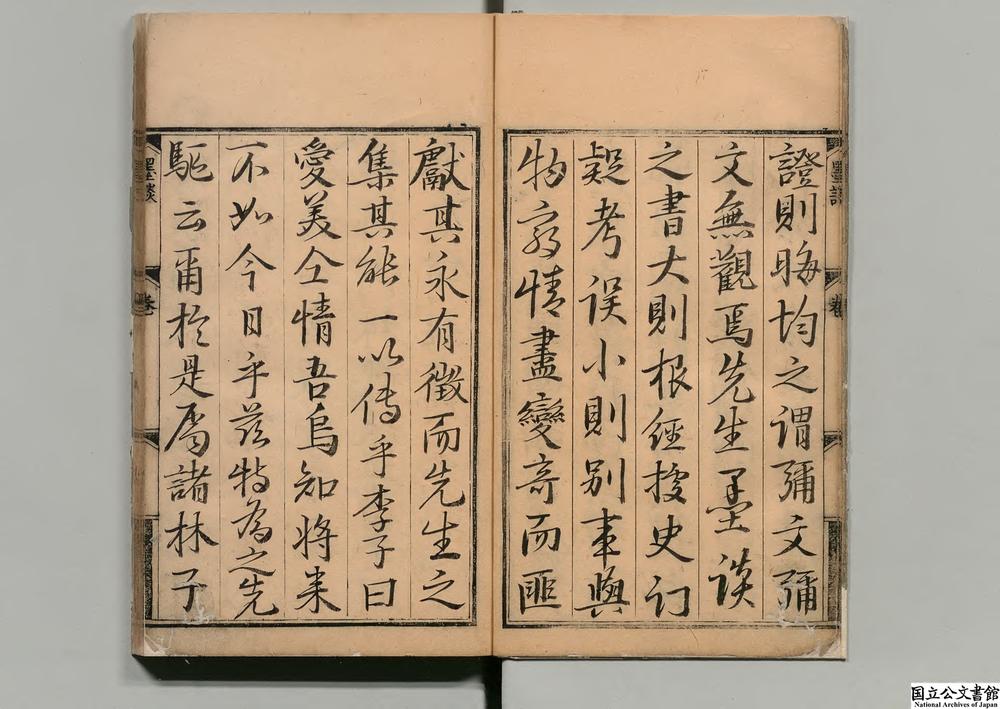 墨談
卷
證則晦均之謂彌文彌
文無觀焉先生墨談
之書大則根經據史訂
疑考誤小則别事與
物窮情盡變奇而匪
獻其永有徵而先生之
集其能一以傳乎李子曰
愛美仝情吾烏知將来
不如今日乎茲特為之先
驅云爾於是屬諸林子
墨談
卷
国立公文書館
National Archives of Japan